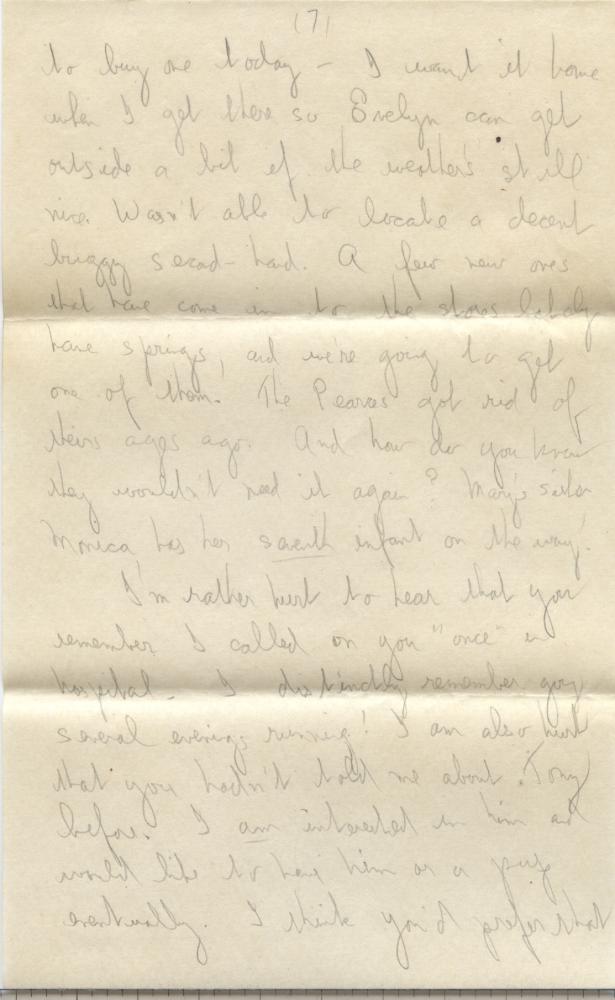 (7)
to buy one today - I want it home
when I get there so Evelyn can get
outside a bit if the weather's still
nice. Wasn't able to locate a decent
buggy second-hand. A few new ones
that have come in to the stores lately
have springs, and we're going to get
one of them. The Pearces got rid of
theirs ages ago. And how do you know
they wouldn't need it again? Mary's sister
Monica has her seventh infant on the way!
I'm rather hurt to hear that you
remember I called on you "once" in
hospital - I distinctly remember going
several evenings running! I am also hurt
that you hadn't told me about Tony
before. I am interested in him and
would like to have him or a pup
eventually. I think you'd prefer that